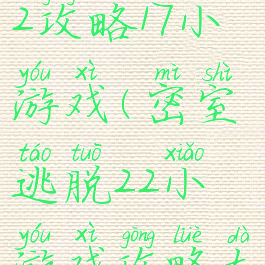 2攻略17小
yóu xì mì shì
游戏(密室
táo tuō xiǎo
逃脱22小
yóu xì gōng lüè dà
游戏攻略大